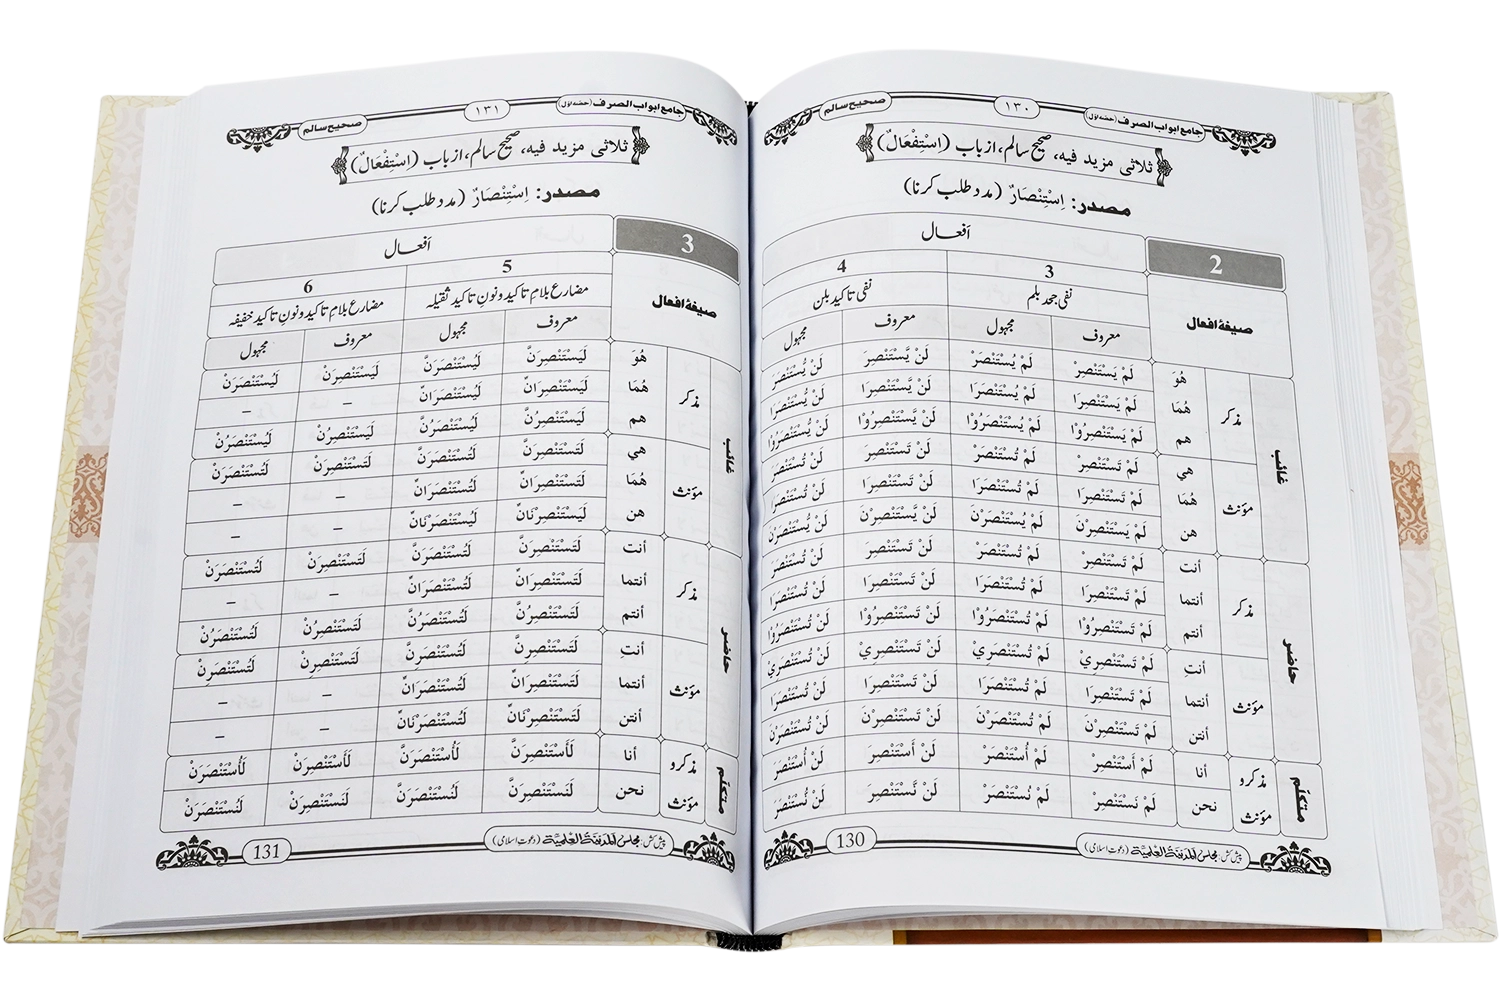 جامع ابواب الصرف (حصّہ اوّل) ١٣٠ صحیح سالم
ثلاثی مزید فیہ، صحیح سالم، از باب (اِسْتِفْعَالٌ)
مصدر: اِسْتِنْصَارٌ (مدد طلب کرنا)
2 اَفعال
صیغۂ افعال 3 4
نفی جحد بلم نفی تاکید بلن
معروف مجہول معروف مجہول
غائب مذکر هُوَ لَمْ يَسْتَنْصِرْ لَمْ يُسْتَنْصَرْ لَنْ يَّسْتَنْصِرَ لَنْ يُّسْتَنْصَرَ
هُمَا لَمْ يَسْتَنْصِرَا لَمْ يُسْتَنْصَرَا لَنْ يَّسْتَنْصِرَا لَنْ يُّسْتَنْصَرَا
هم لَمْ يَسْتَنْصِرُوْا لَمْ يُسْتَنْصَرُوْا لَنْ يَّسْتَنْصِرُوْا لَنْ يُّسْتَنْصَرُوْا
مؤنث هي لَمْ تَسْتَنْصِرْ لَمْ تُسْتَنْصَرْ لَنْ تَسْتَنْصِرَ لَنْ تُسْتَنْصَرَ
هُمَا لَمْ تَسْتَنْصِرَا لَمْ تُسْتَنْصَرَا لَنْ تَسْتَنْصِرَا لَنْ تُسْتَنْصَرَا
هن لَمْ يَسْتَنْصِرْنَ لَمْ يُسْتَنْصَرْنَ لَنْ يَّسْتَنْصِرْنَ لَنْ يُّسْتَنْصَرْنَ
حاضر مذکر أنت لَمْ تَسْتَنْصِرْ لَمْ تُسْتَنْصَرْ لَنْ تَسْتَنْصِرَ لَنْ تُسْتَنْصَرَ
أنتما لَمْ تَسْتَنْصِرَا لَمْ تُسْتَنْصَرَا لَنْ تَسْتَنْصِرَا لَنْ تُسْتَنْصَرَا
أنتم لَمْ تَسْتَنْصِرُوْا لَمْ تُسْتَنْصَرُوْا لَنْ تَسْتَنْصِرُوْا لَنْ تُسْتَنْصَرُوْا
مؤنث أنتِ لَمْ تَسْتَنْصِرِيْ لَمْ تُسْتَنْصَرِيْ لَنْ تَسْتَنْصِرِيْ لَنْ تُسْتَنْصَرِيْ
أنتما لَمْ تَسْتَنْصِرَا لَمْ تُسْتَنْصَرَا لَنْ تَسْتَنْصِرَا لَنْ تُسْتَنْصَرَا
أنتن لَمْ تَسْتَنْصِرْنَ لَمْ تُسْتَنْصَرْنَ لَنْ تَسْتَنْصِرْنَ لَنْ تُسْتَنْصَرْنَ
متکلّم مذکر و أنا لَمْ أَسْتَنْصِرْ لَمْ أُسْتَنْصَرْ لَنْ أَسْتَنْصِرَ لَنْ أُسْتَنْصَرَ
مؤنث نحن لَمْ نَسْتَنْصِرْ لَمْ نُسْتَنْصَرْ لَنْ نَّسْتَنْصِرَ لَنْ نُّسْتَنْصَرَ
پیش کش: مجلس المدینۃ العلمیۃ (دعوت اسلامی) 130
جامع ابواب الصرف (حصّہ اوّل) ١٣١ صحیح سالم
ثلاثی مزید فیہ، صحیح سالم، از باب (اِسْتِفْعَالٌ)
مصدر: اِسْتِنْصَارٌ (مدد طلب کرنا)
3 اَفعال
صیغۂ افعال 5 6
مضارع بلامِ تاکید و نونِ تاکید ثقیلہ مضارع بلامِ تاکید و نونِ تاکید خفیفہ
معروف مجہول معروف مجہول
غائب مذکر هُوَ لَيَسْتَنْصِرَنَّ لَيُسْتَنْصَرَنَّ لَيَسْتَنْصِرَنْ لَيُسْتَنْصَرَنْ
هُمَا لَيَسْتَنْصِرَانِّ لَيُسْتَنْصَرَانِّ – –
هم لَيَسْتَنْصِرُنَّ لَيُسْتَنْصَرُنَّ لَيَسْتَنْصِرُنْ لَيُسْتَنْصَرُنْ
مؤنث هي لَتَسْتَنْصِرَنَّ لَتُسْتَنْصَرَنَّ لَتَسْتَنْصِرَنْ لَتُسْتَنْصَرَنْ
هُمَا لَتَسْتَنْصِرَانِّ لَتُسْتَنْصَرَانِّ – –
هن لَيَسْتَنْصِرْنَانِّ لَيُسْتَنْصَرْنَانِّ – –
حاضر مذکر أنت لَتَسْتَنْصِرَنَّ لَتُسْتَنْصَرَنَّ لَتَسْتَنْصِرَنْ لَتُسْتَنْصَرَنْ
أنتما لَتَسْتَنْصِرَانِّ لَتُسْتَنْصَرَانِّ – –
أنتم لَتَسْتَنْصِرُنَّ لَتُسْتَنْصَرُنَّ لَتَسْتَنْصِرُنْ لَتُسْتَنْصَرُنْ
مؤنث أنتِ لَتَسْتَنْصِرِنَّ لَتُسْتَنْصَرِنَّ لَتَسْتَنْصِرِنْ لَتُسْتَنْصَرِنْ
أنتما لَتَسْتَنْصِرَانِّ لَتُسْتَنْصَرَانِّ – –
أنتن لَتَسْتَنْصِرْنَانِّ لَتُسْتَنْصَرْنَانِّ – –
متکلّم مذکر و أنا لَأَسْتَنْصِرَنَّ لَأُسْتَنْصَرَنَّ لَأَسْتَنْصِرَنْ لَأُسْتَنْصَرَنْ
مؤنث نحن لَنَسْتَنْصِرَنَّ لَنُسْتَنْصَرَنَّ لَنَسْتَنْصِرَنْ لَنُسْتَنْصَرَنْ
پیش کش: مجلس المدینۃ العلمیۃ (دعوت اسلامی) 131